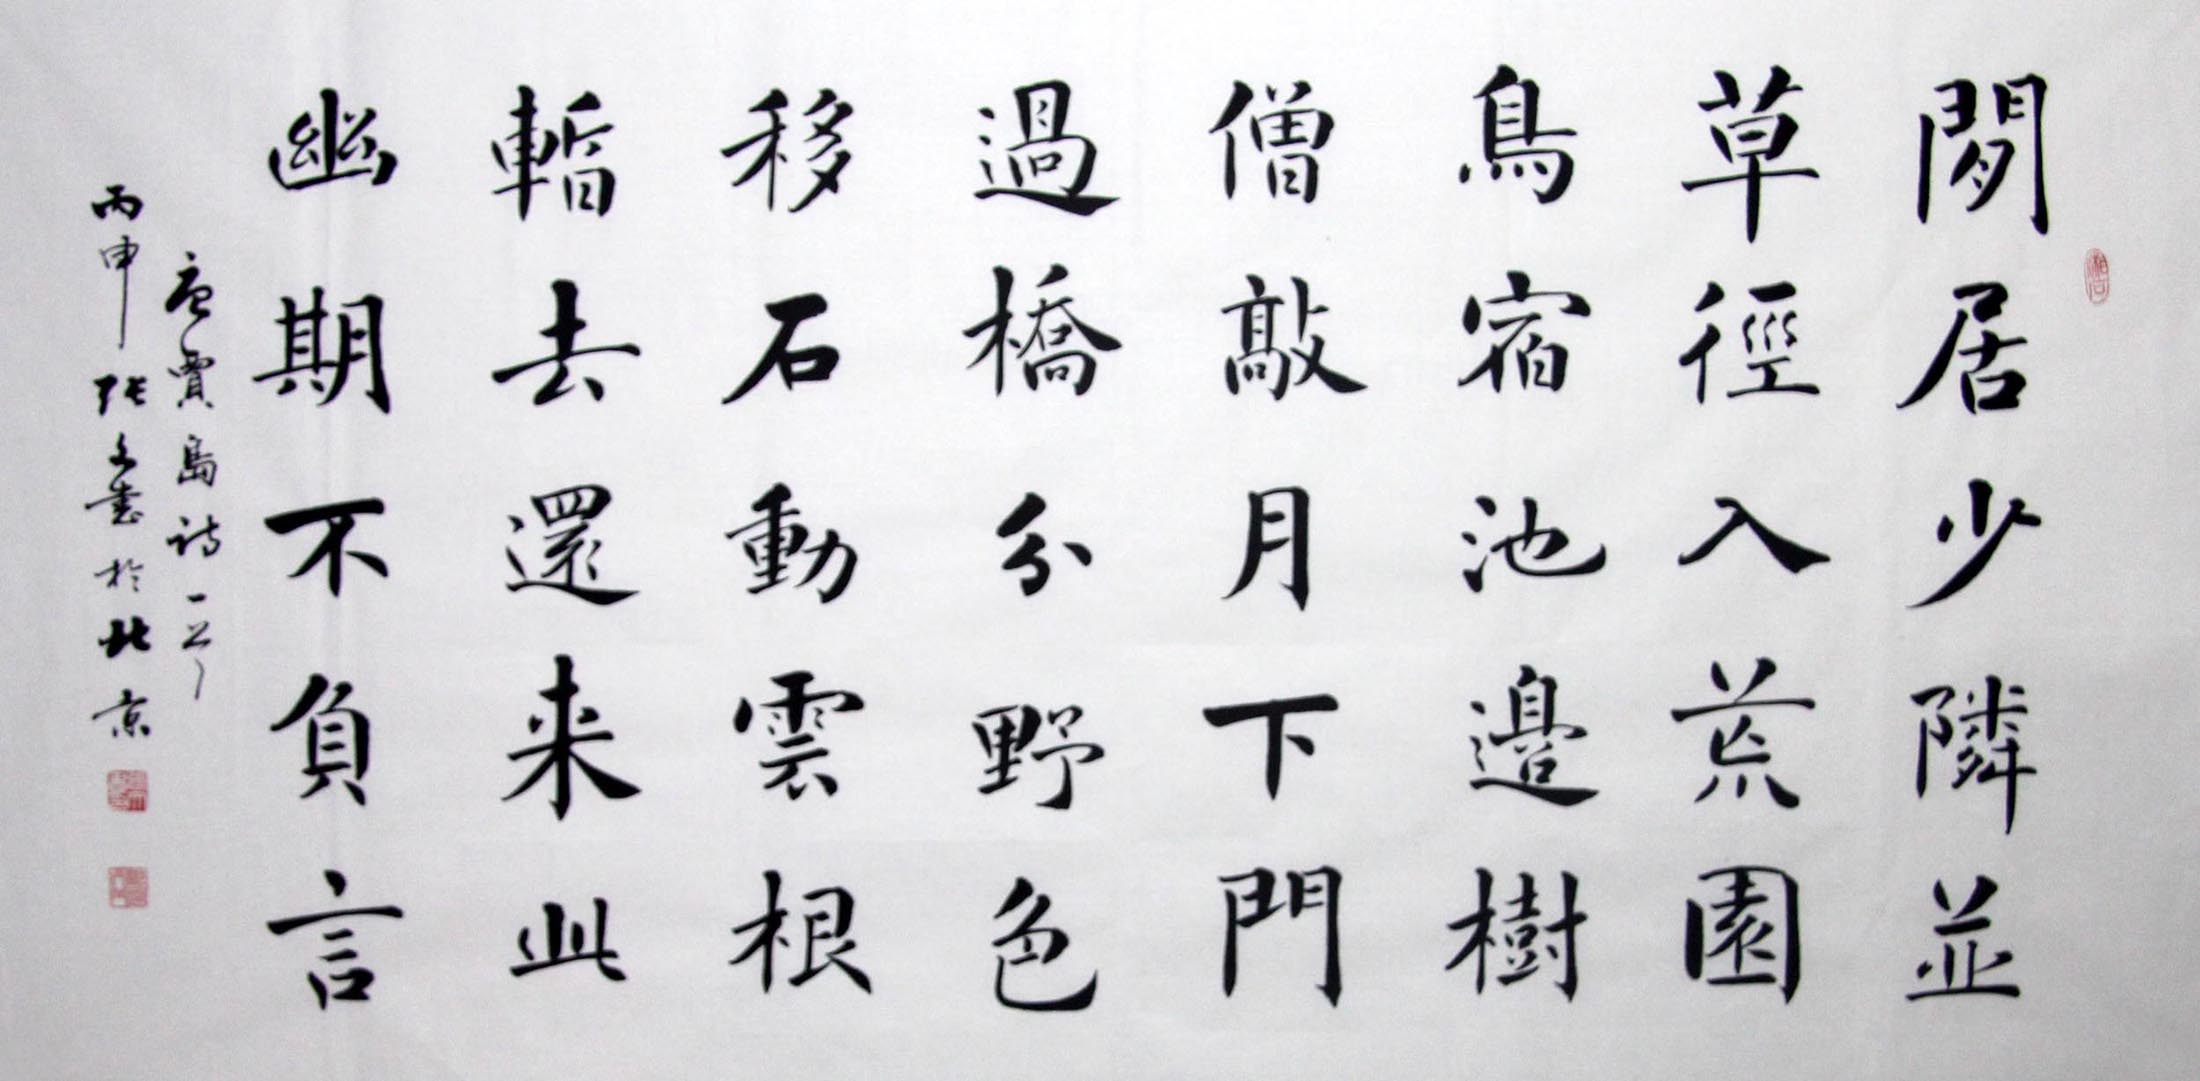 閒居少隣並
草徑入荒園
鳥宿池邊樹
僧敲月下門
過橋分野色
移石動雲根
暫去還来此
幽期不負言
唐賈島詩一首
丙申張文書於北京